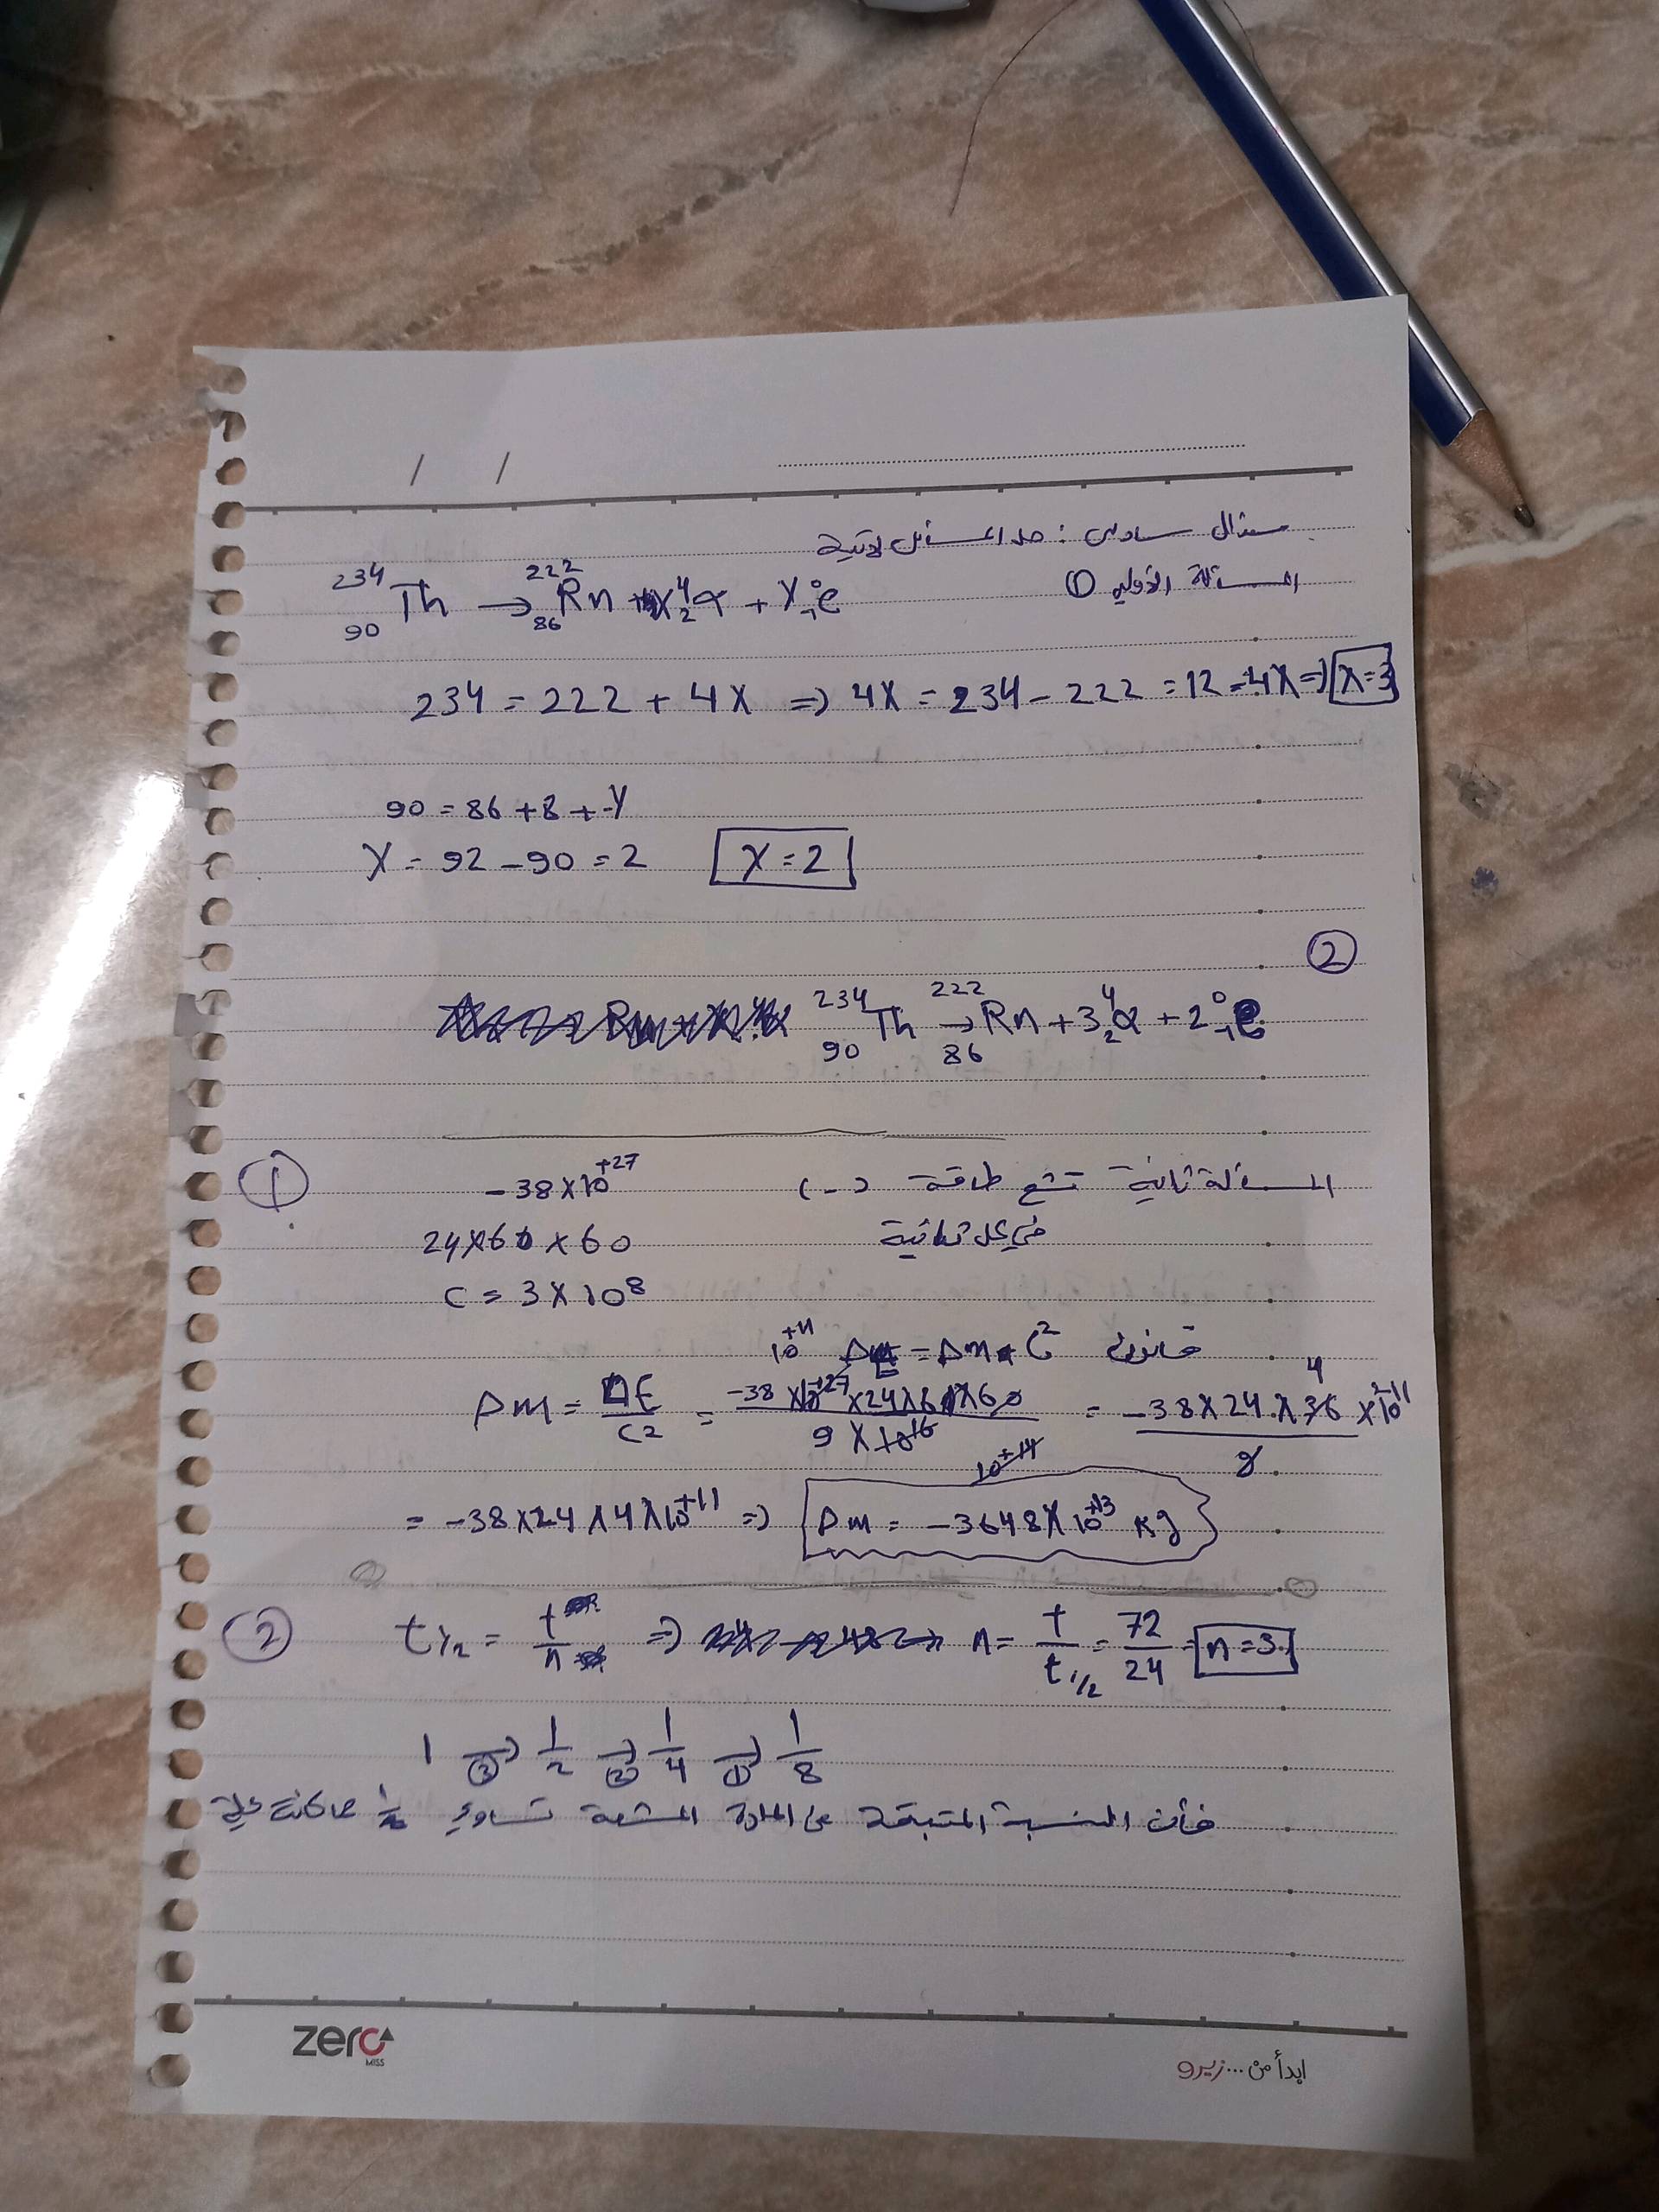 / /
سؤال سادس : حل المسائل لاتية
المسألة الأولى ①
²³⁴₉₀Th → ²²²₈₆Rn + x⁴₂α + y⁰₋₁e
234 = 222 + 4x ⇒ 4x = 234 - 222 = 12 = 4x ⇒ x = 3
90 = 86 + 8 + -y
x = 92 - 90 = 2 x = 2
②
²³⁴₉₀Th → ²²²₈₆Rn + 3⁴₂α + 2⁰₋₁e
المسألة ثانية تشع طاقة (-) -38 × 10⁺²⁷ ①
في كل ثانية 24 × 60 × 60
C = 3 × 10⁸
قانون ΔE = Δm • C² 10⁺¹¹
Δm = ΔE/C² = -38 × 10⁺²⁷ × 24 × 60 × 60 / 9 × 10¹⁶ = -38 × 24 × 36 × 10⁺¹¹ / 9
4
10⁺¹⁴
= -38 × 24 × 4 × 10⁺¹¹ ⇒ Δm = -3648 × 10⁺¹³ kg
② t₁/₂ = t/n ⇒ n = t/t₁/₂ = 72/24 = n = 3
1 →① 1/2 →② 1/4 →③ 1/8
فأن النسبة المتبقة من المادة المشعة تساوي مماكانت علية
zero
MISS
ابدأ من... زيرو